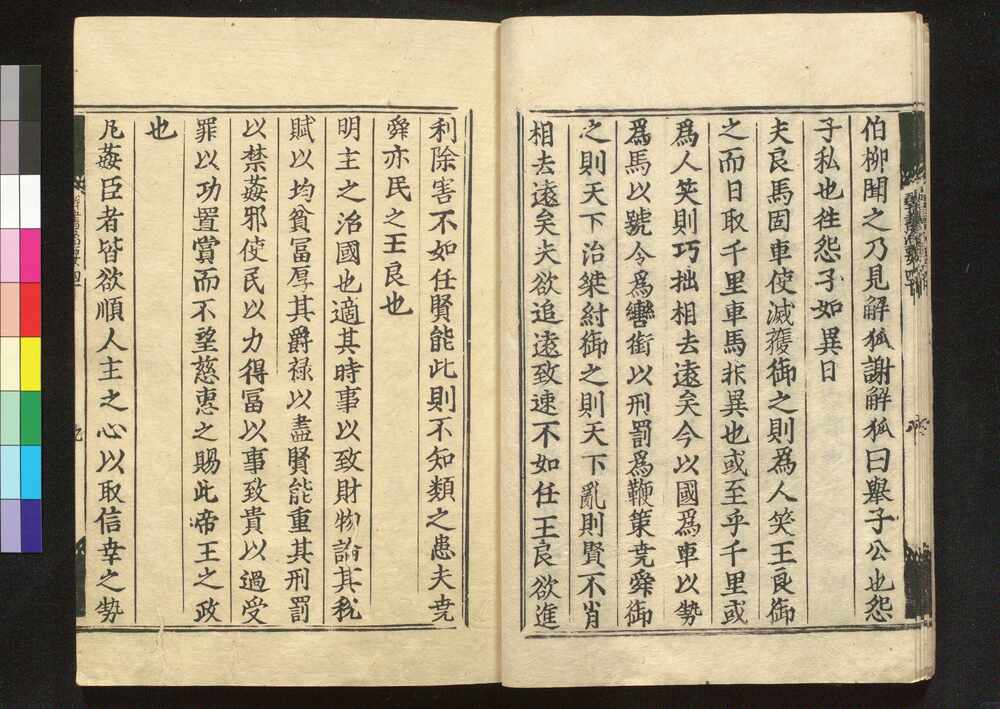 伯柳聞之乃見解狐謝解狐曰舉子公也怨
子私也往怨子如異日
夫良馬固車使滅獲御之則為人笑王良御
之而日取千里車馬非異也或至乎千里或
為人笑則巧拙相去遠矣今以國為車以勢
為馬以號令為轡銜以刑罰為鞭策尭舜御
之則天下治桀紂御之則天下亂則賢不肖
相去遠矣夫欲追遠致速不如任王良欲進
利除害不如任賢能此則不知類之患夫尭
舜亦民之王良也
明主之治國也適其時事以致財物論其稅
賦以均貧冨厚其爵祿以盡賢能重其刑罰
以禁姦邪使民以力得冨以事致貴以過受
罪以功置賞而不望慈惠之賜此帝王之政
也
凡姦臣者皆欲順人主之心以取信幸之勢